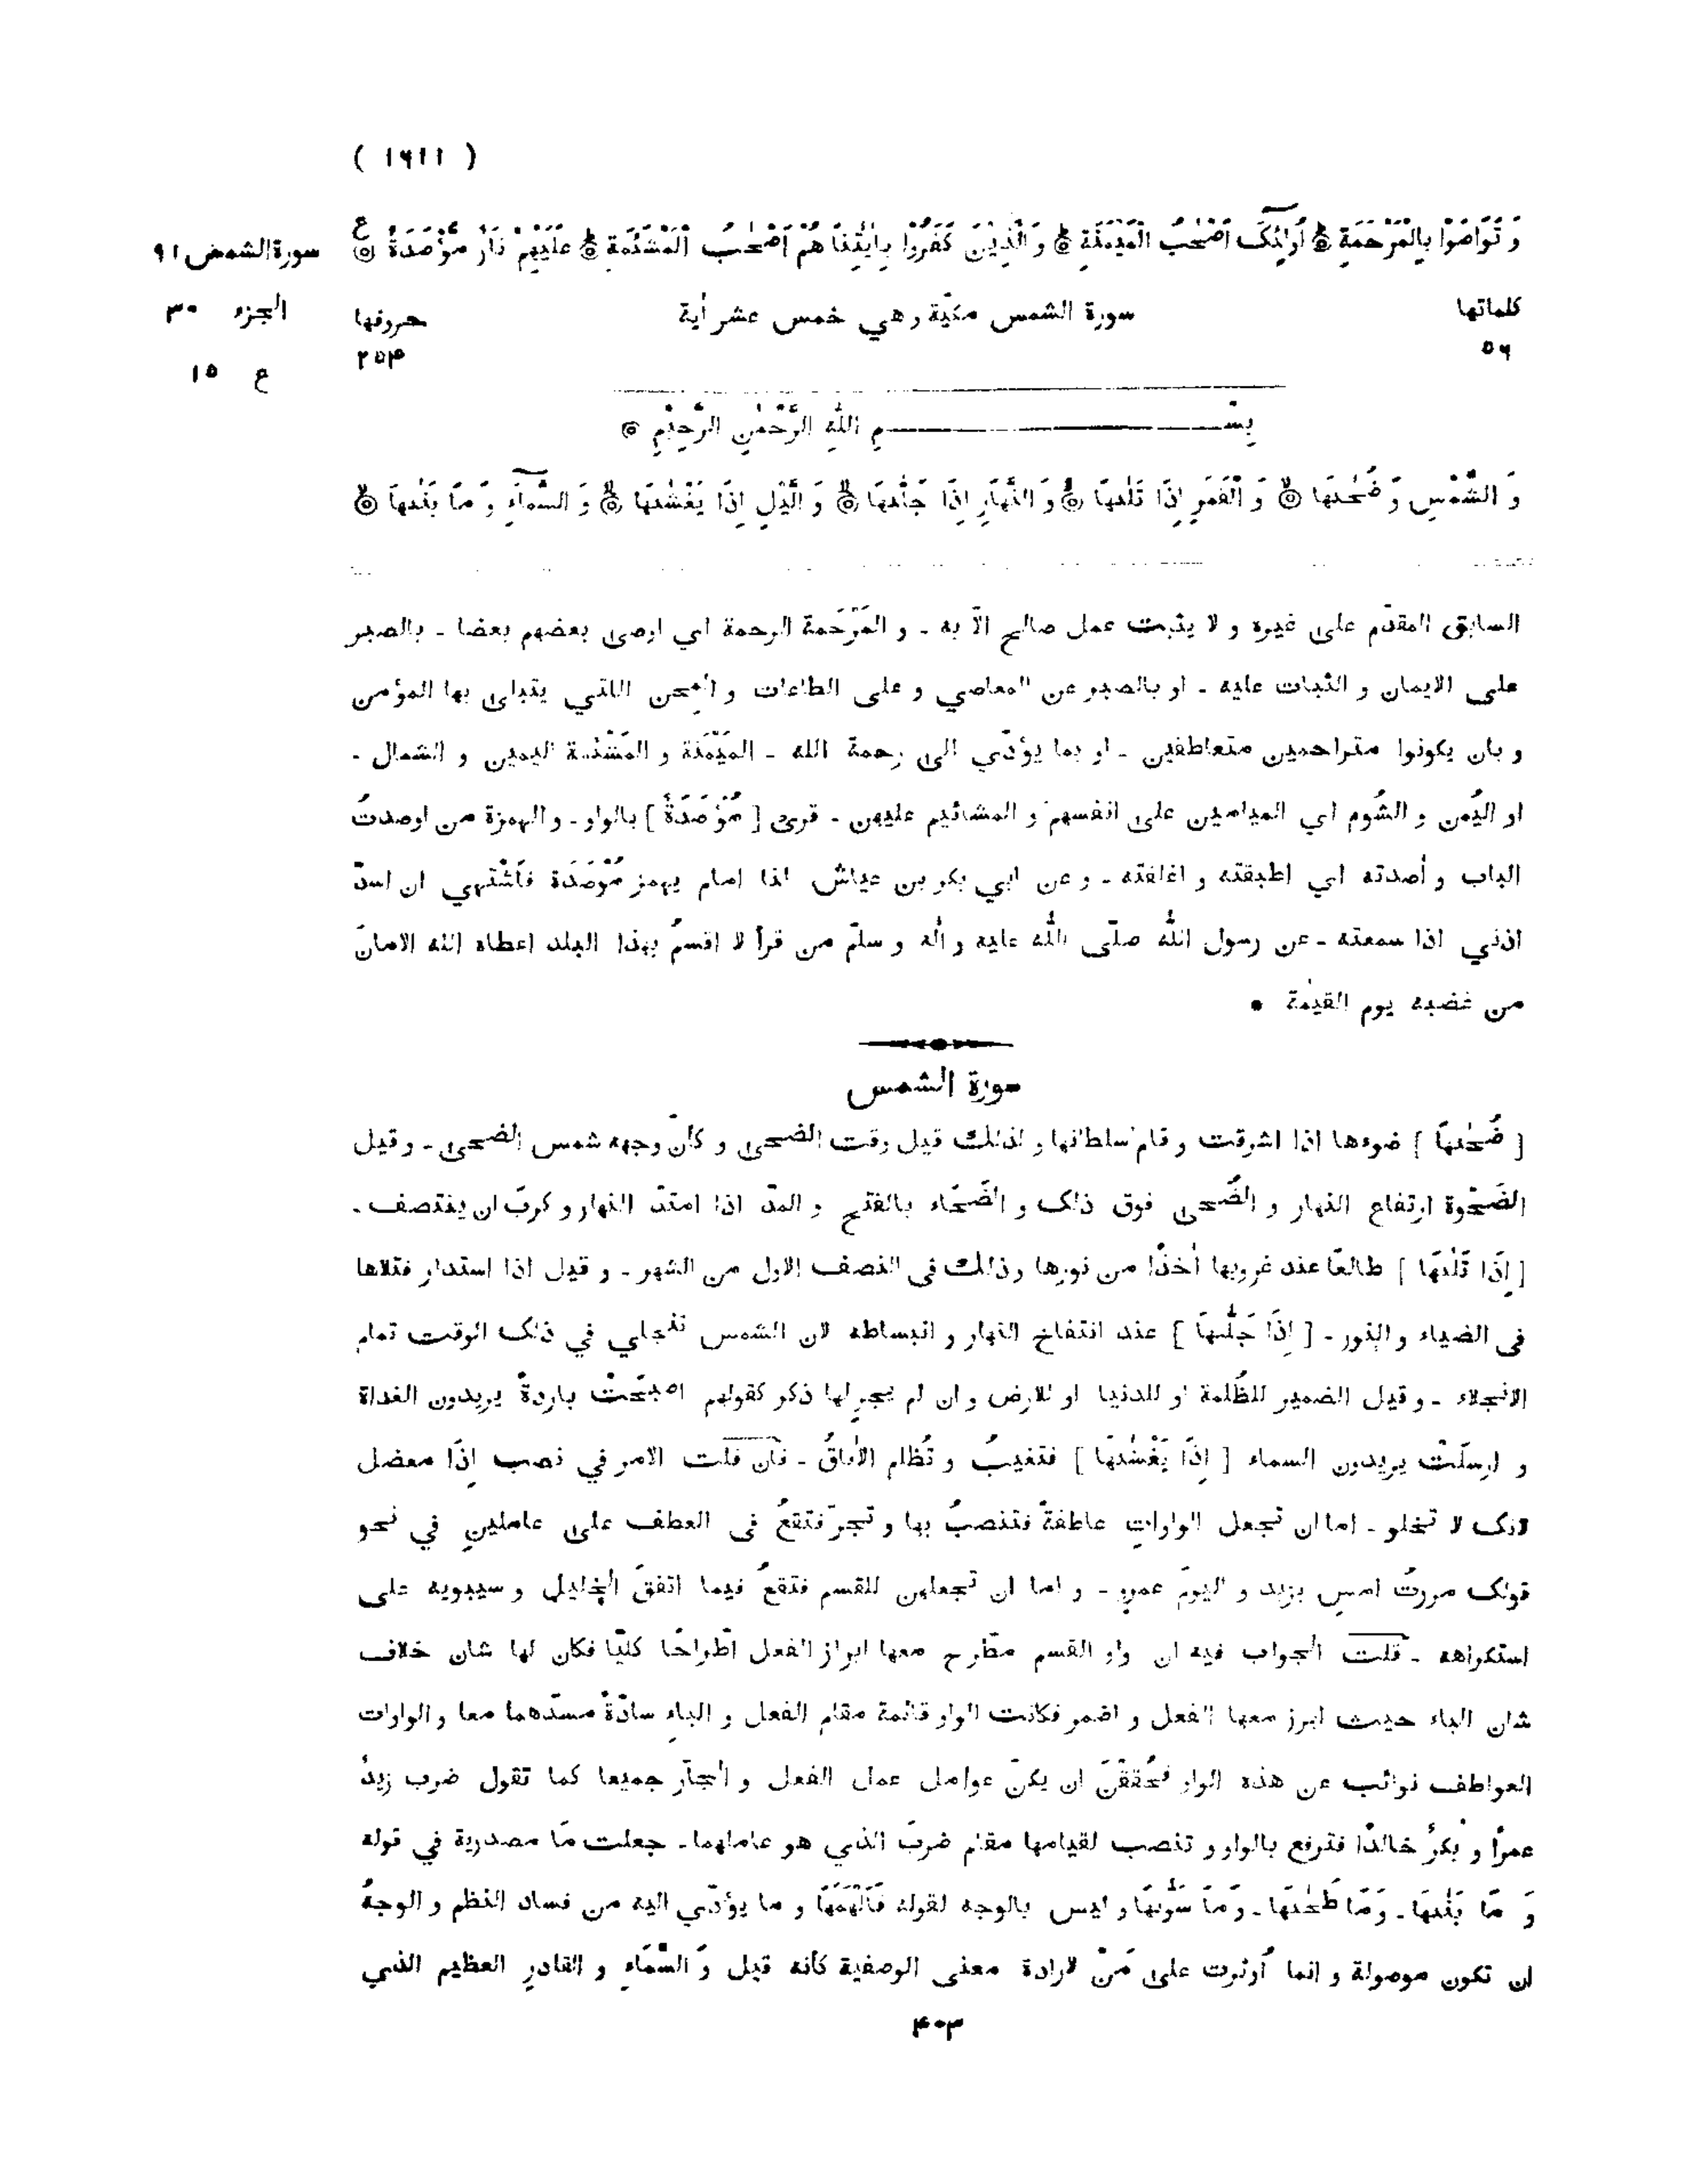 ( ١٦١١ )
وَ تَوَاصَوْا بِالْمَرْحَمَةِ ۝ أُولٰئِكَ أَصْحٰبُ الْمَيْمَنَةِ ۝ وَ الَّذِيْنَ كَفَرُوْا بِاٰيٰتِنَا هُمْ أَصْحٰبُ الْمَشْئَمَةِ ۝ عَلَيْهِمْ نَارٌ مُّؤْصَدَةٌ ۝ ع
سورة الشمس ٩١
الجزء ٣٠
ع ١٥
كلماتها سورة الشمس مكيّة وهي خمس عشر أية حروفها
٥٦ ٢٥٤
بِسْمِ اللّٰهِ الرَّحْمٰنِ الرَّحِيْمِ ۝
وَ الشَّمْسِ وَ ضُحٰىهَا ۝ وَ الْقَمَرِ إِذَا تَلٰىهَا ۝ وَ النَّهَارِ إِذَا جَلّٰىهَا ۝ وَ الَّيْلِ إِذَا يَغْشٰىهَا ۝ وَ السَّمَآءِ وَ مَا بَنٰىهَا ۝
السابق المقدّم على غيره و لا يثبت عمل صالح الّا به ـ و المَرْحَمة الرحمة اي اوصى بعضهم بعضا ـ بالصبر
على الايمان و الثبات عليه ـ او بالصبر عن المعاصي و على الطاعات و المحن اللتي يبتلى بها المؤمن
و بان يكونوا متراحمين متعاطفين ـ او بما يؤدّي الى رحمة الله ـ المَيْمَنة و المَشْئمة اليمين و الشمال ـ
او اليُمن و الشُوم اي الميامين على انفسهم و المشائيم عليهن ـ قرئ [ مُؤْصَدَةٌ ] بالواو ـ و الهمزة من اوصدتُ
الباب و أصدته اي اطبقته و اغلقته ـ و عن ابي بكر بن عياش لنا امام يهمز مُؤْصَدَة فأشْتهي ان اسدّ
اذني اذا سمعته ـ عن رسول الله صلّى الله عليه و أله و سلّم من قرأ لا اقسمُ بهذا البلد اعطاه الله الامانَ
من غضبه يوم القيٰمة •
سورة الشمس
[ ضُحٰىهَا ] ضوءها اذا اشرقت و قام سلطانها و لذلك قيل وقت الضحى و كأنّ وجهه شمس الضحى ـ و قيل
الضَحْوة ارتفاع النهار و الضُحى فوق ذلك و الضَحَاء بالفتح و المدّ اذا امتدّ النهار و كربَ ان ينتصف ـ
[ إِذَا تَلٰىهَا ] طالعًا عند غروبها أخذًا من نورها و ذلك فى النصف الاول من الشهر ـ و قيل اذا استدار فتلاها
فى الضياء و النور ـ [ إِذَا جَلّٰىهَا ] عند انتفاخ النهار و انبساطه لان الشمس تنجلي في ذلك الوقت تمام
الانجلاء ـ و قيل الضمير للظُلمة او للدنيا او للارض و ان لم يجرِ لها ذكر كقولهم اصبَحَتْ باردةً يريدون الغداة
و ارسلَتْ يريدون السماء [ إِذَا يَغْشٰىهَا ] فتغيبُ و تُظلم الأفاقُ ـ فان قلت الامر في نصب إذَا معضل
لانك لا تخلو ـ اما ان تجعل الواواتِ عاطفةً فتنصبُ بها و تجرّ فتقعُ فى العطف على عاملينِ في نحو
قولك مررتُ امسِ بزيد و اليومَ عمرٍو ـ و اما ان تجعلهن للقسم فتقعُ فيما اتفقَ الخليل و سيبويه على
استكراهه ـ قلت الجواب فيه ان واو القسم مطّرح معها ابراز الفعل اطّراحًا كليًّا فكان لها شان خلاف
شان الباء حيث ابرز معها الفعل و اضمر فكانت الواو قائمة مقام الفعل و الباءِ سادّةً مسدّهما معا و الواوات
العواطف نوائب عن هذه الواو فحُققْنَ ان يكنّ عوامل عمل الفعل و الجارّ جميعا كما تقول ضرب زيدٌ
عمرًا و بكرٌ خالدًا فترفع بالواو و تنصب لقيامها مقام ضربَ الذي هو عاملهما ـ جعلت مَا مصدرية في قوله
وَ مَا بَنٰىهَا ـ وَمَا طَحٰىهَا ـ وَمَا سَوّٰىهَا و ليس بالوجه لقوله فَأَلْهَمَهَا و ما يؤدّي اليه من فساد النظم و الوجهُ
ان تكون موصولة و انما أوثرت على مَنْ لارادة معنى الوصفية كأنه قيل وَ السَّمَاءِ و القادرِ العظيم الذي
٤٠٣